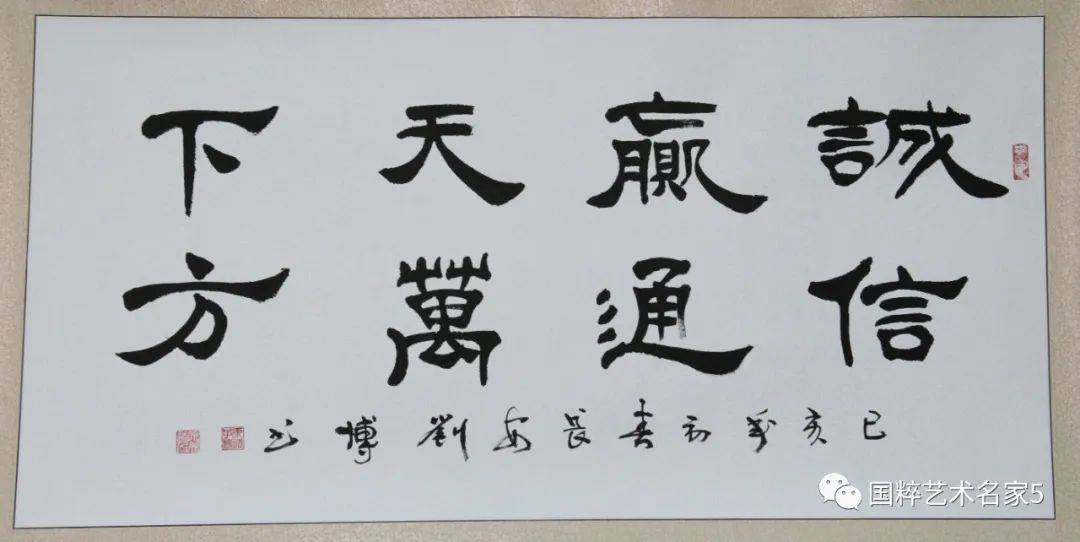 誠贏天下
信通萬方
己亥初春長安劉博书
国粹艺术名家5